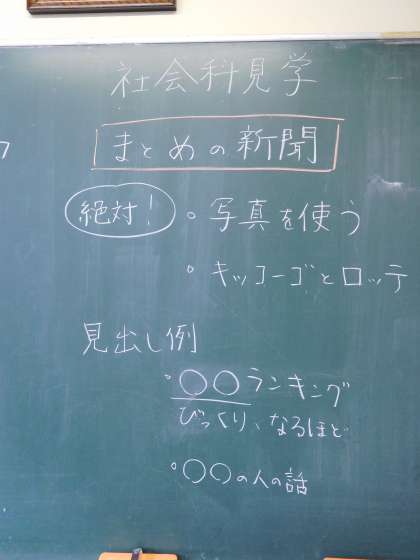 社会科見学
まとめの新聞
絶対! 。写真を使う
。キッコーゴとロッテ
見出し例
。〇〇ランキング
びっくり、なるほど
。〇〇の人の話